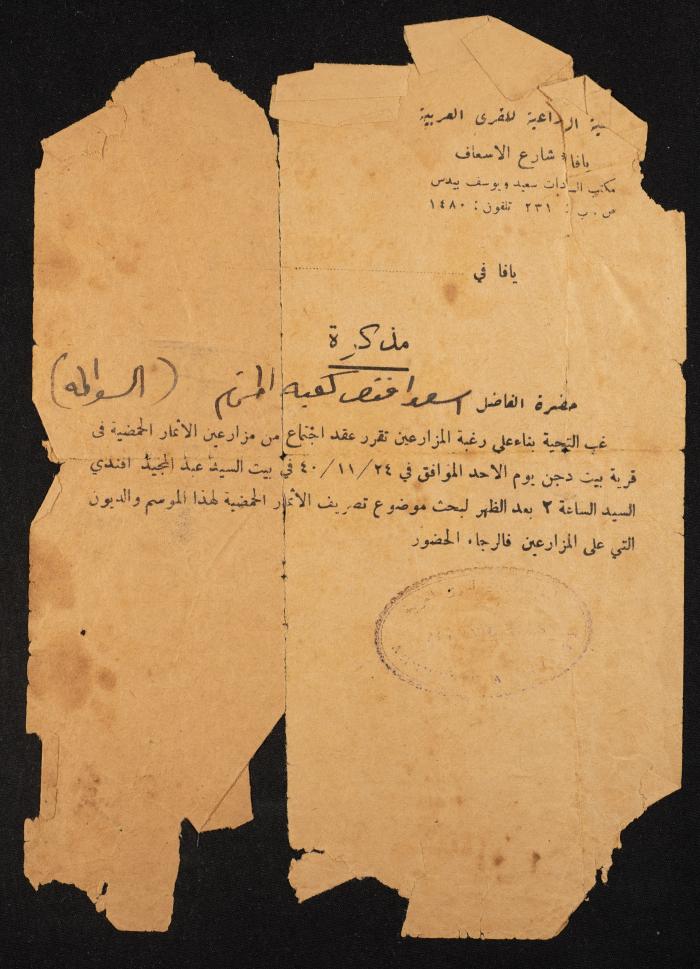 ية الزراعية للقرى العربية
يافا * شارع الاسعاف
مكتب السادات سعيد ويوسف بيدس
ص . ب : ٢٣١ تلفون : ١٤٨٠
يافا في
مذكرة
حضرة الفاضل اسعد افندي كعيه المحترم (السوالمه)
غب التحية بناء على رغبة المزارعين تقرر عقد اجتماع من مزارعين الأثمار الحمضية في
قرية بيت دجن يوم الاحد الموافق في ٤٠/١١/٢٤ في بيت السيد عبد المجيد افندي
السيد الساعة ٢ بعد الظهر لبحث موضوع تصريف الأثمار الحمضية لهذا الموسم والديون
التي على المزارعين فالرجاء الحضور